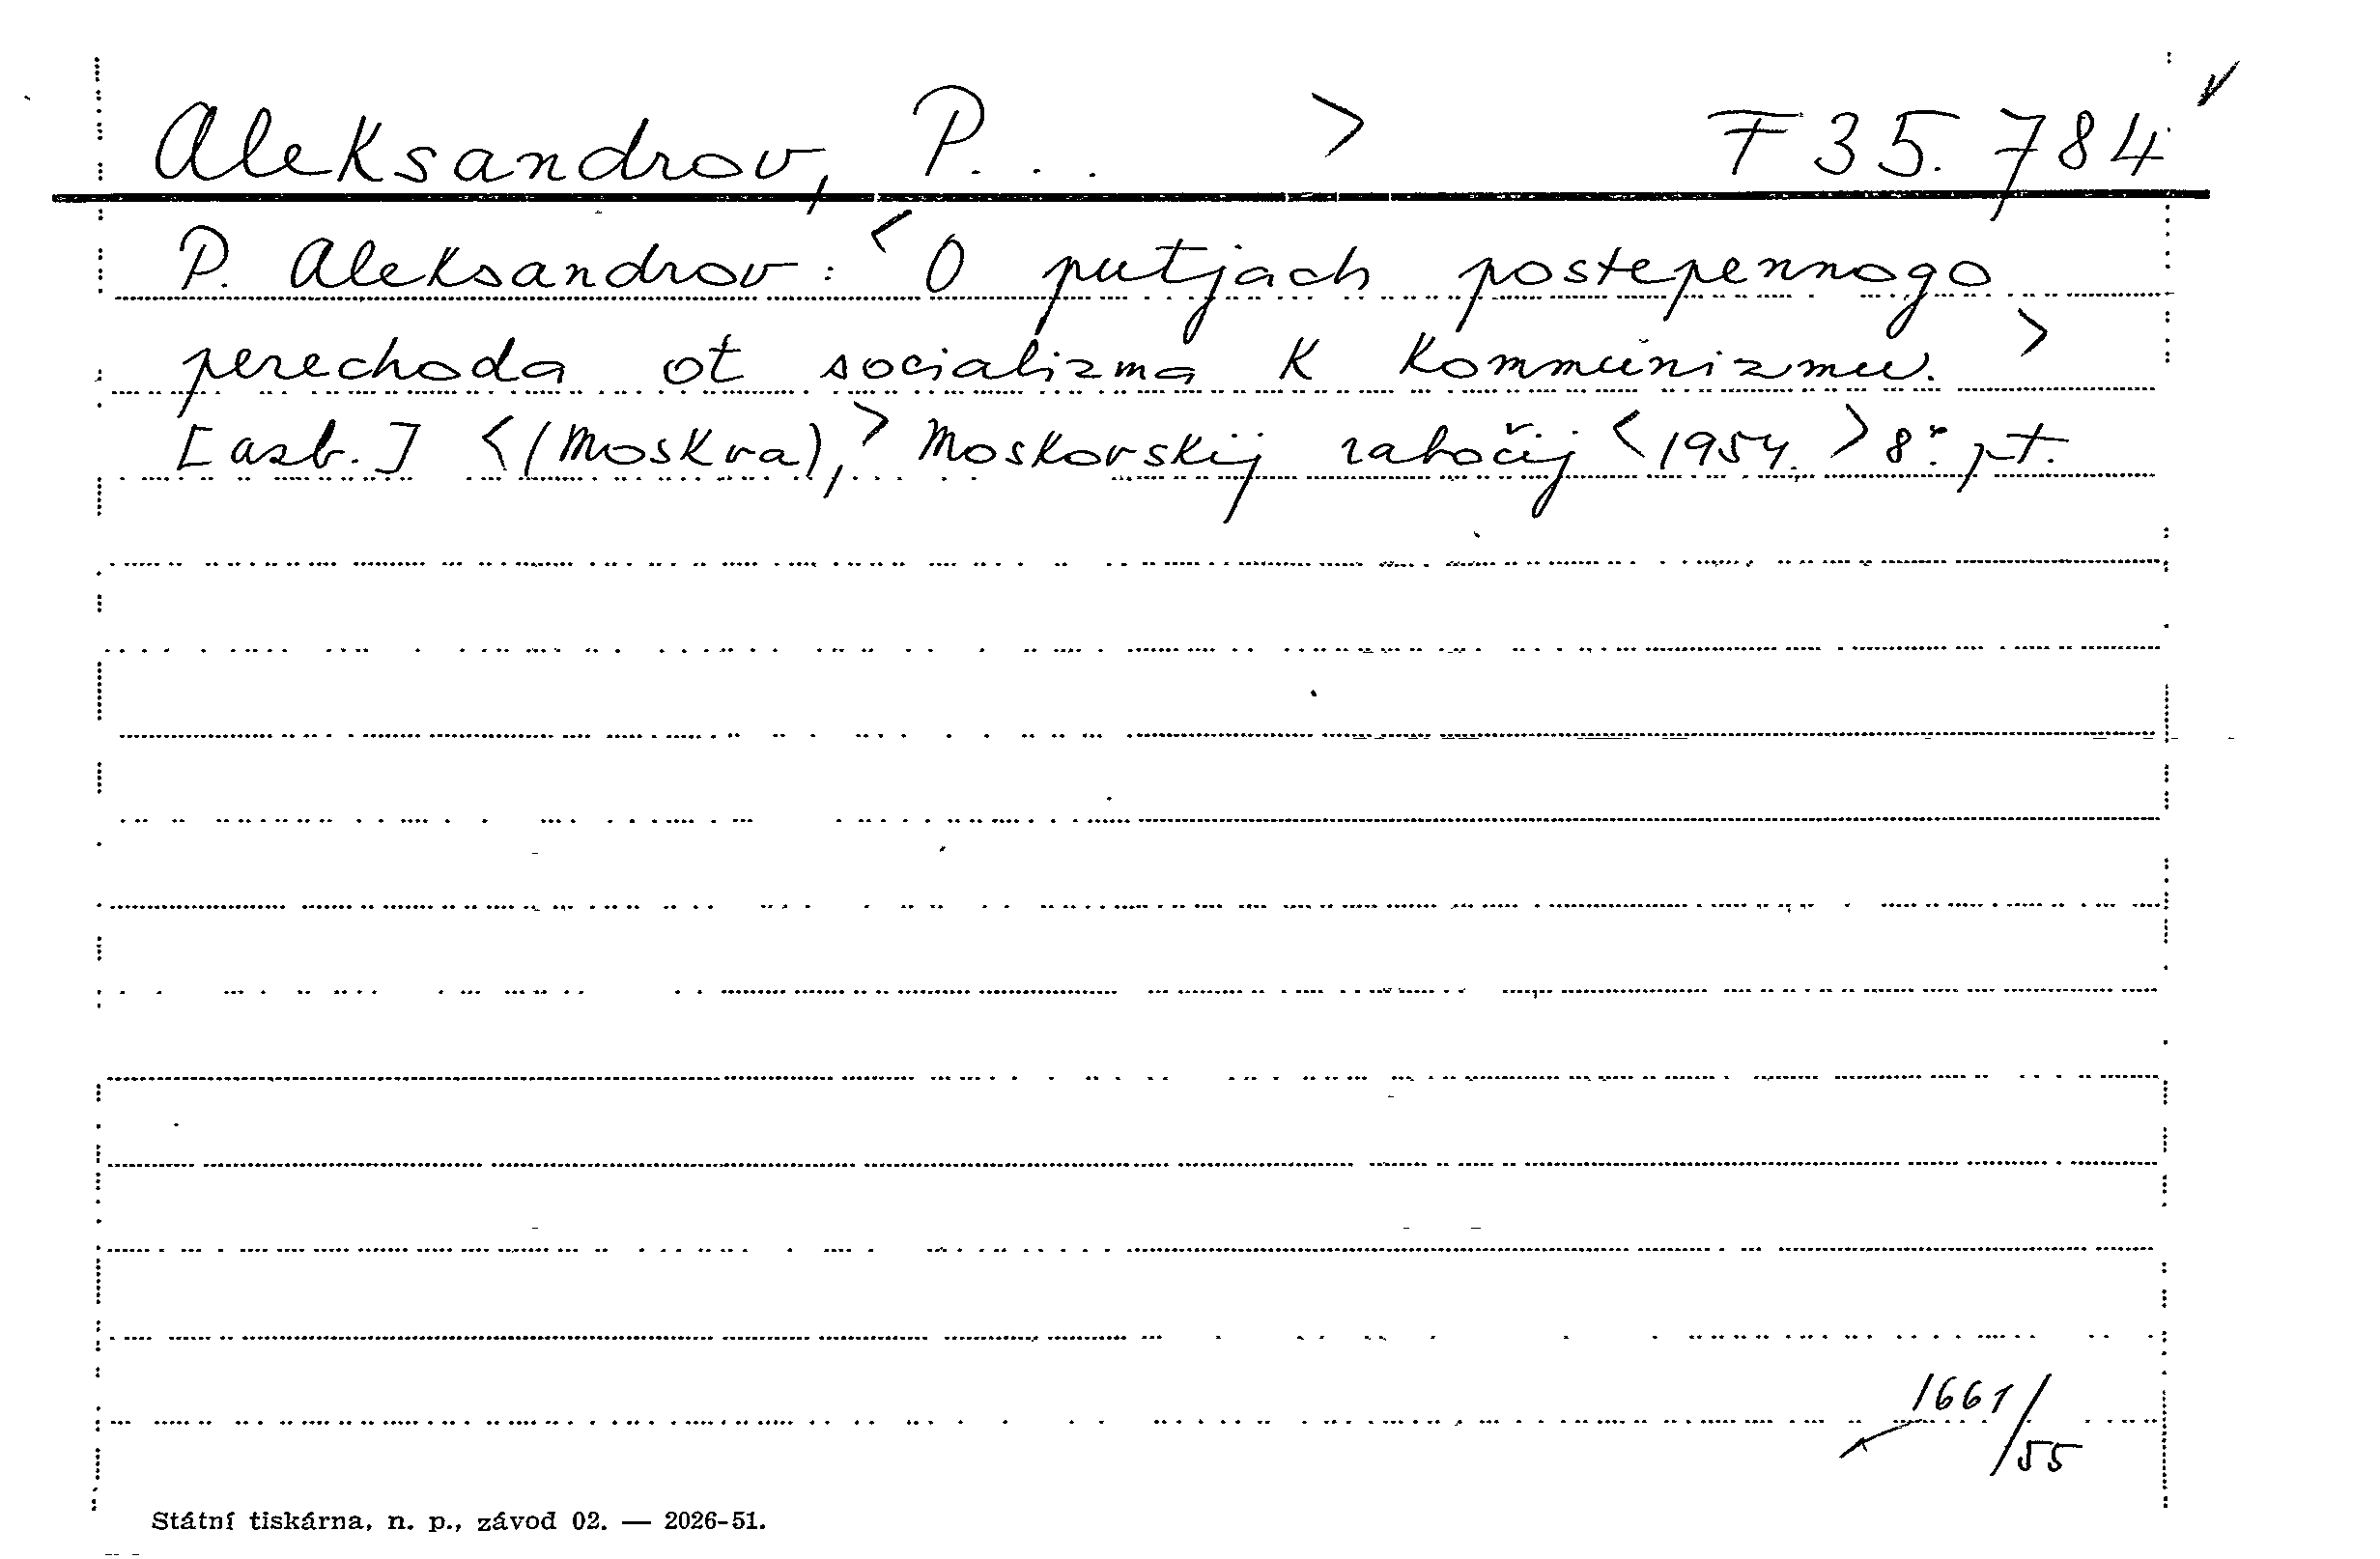 Aleksandrov, P... > F 35.784
P. Aleksandrov: <O putjach postepennogo
perechoda ot socializma k kommunizmu.>
[azb.] <(Moskva),> Moskovskij rabočij <1954.> 8°. pt.
1661/55
Státní tiskárna, n. p., závod 02. — 2026-51.